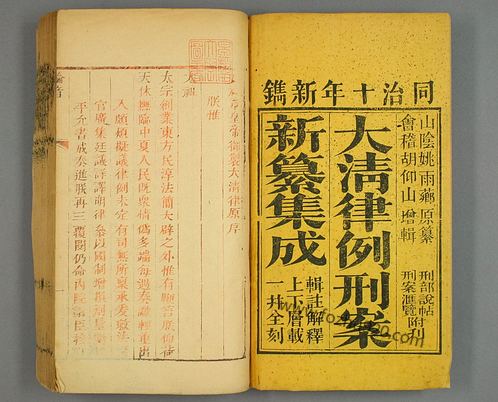 同治十年新鐫
山陰姚雨薌原纂
會稽胡仰山增輯
刑部說帖
刑案滙覽附刊
大清律例刑案
新纂集成
輯註解釋
上下層載
一并全刻
皇帝御製大清律原序
朕惟
太祖
太宗創業東方民淳法簡大辟之外惟有鞭笞朕仰荷
天休撫臨中夏人民既衆情僞多端每遇奏讞輕重出
入頗煩擬議律例未定有司無所稟承爰敕法
官廣集廷議詳譯明律參以國制增損劑量
平允書成奏進朕再三覆閱仍命內院諸臣